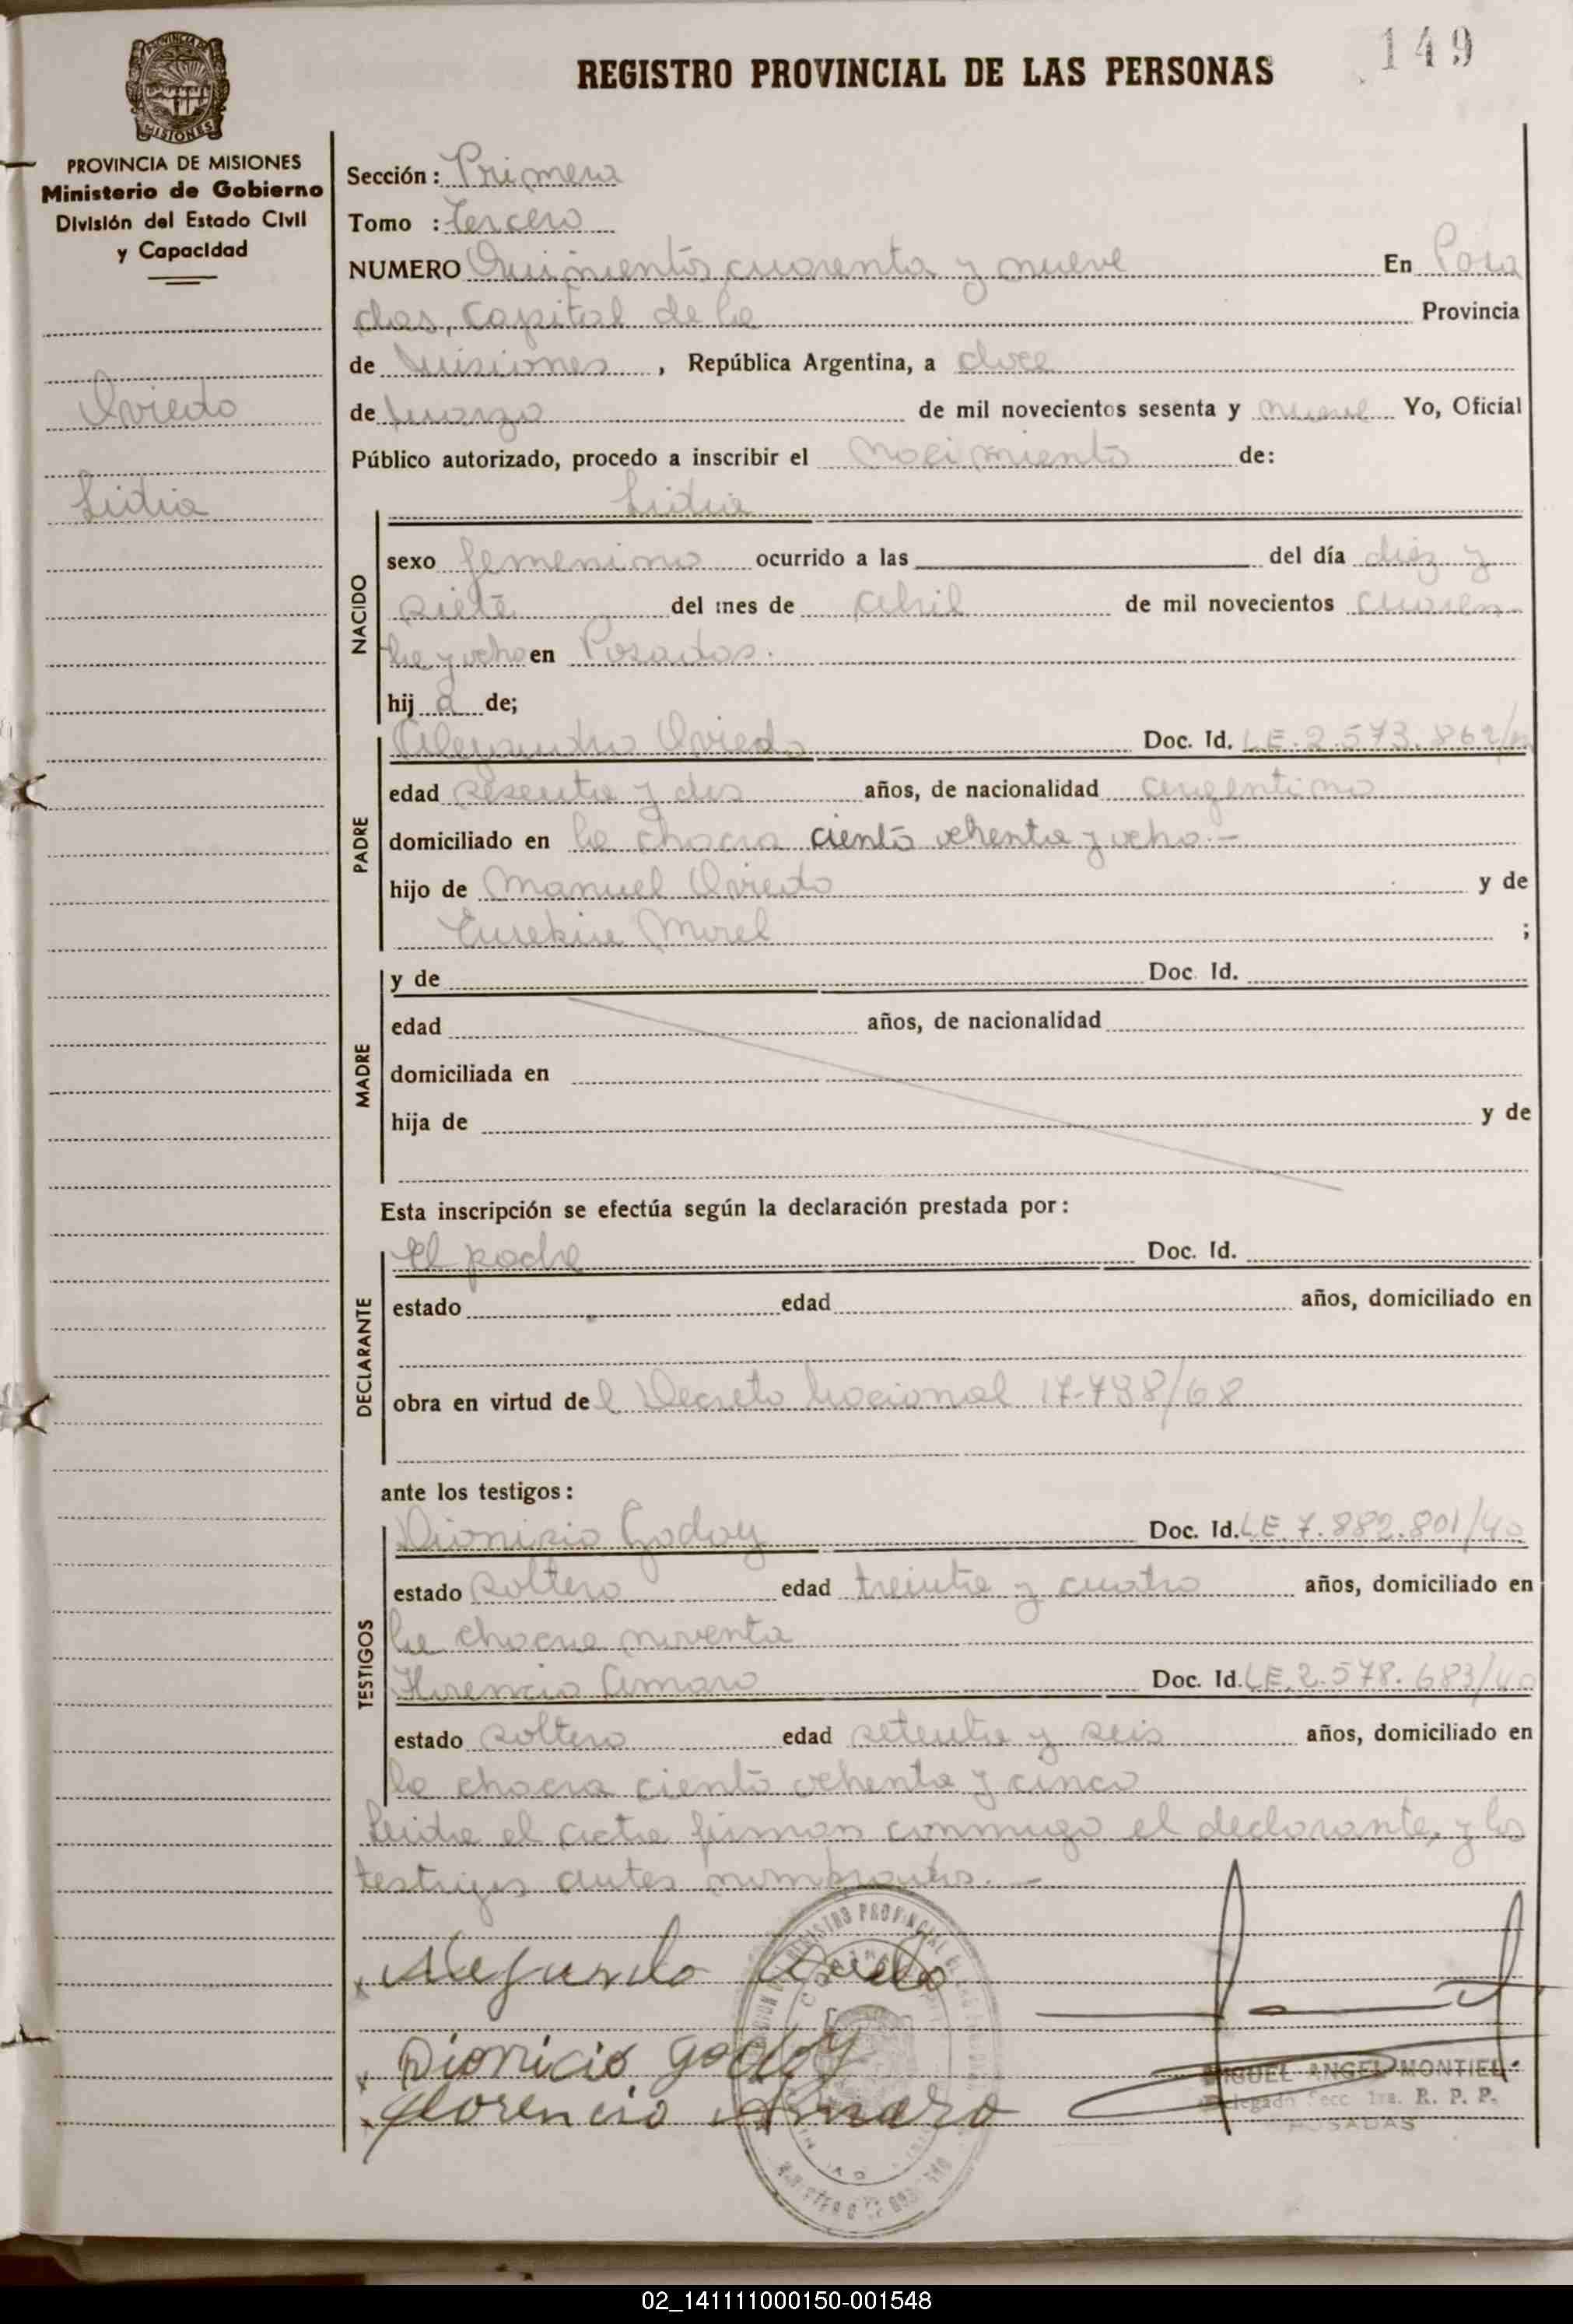 149
REGISTRO PROVINCIAL DE LAS PERSONAS
PROVINCIA DE MISIONES
Ministerio de Gobierno
División del Estado Civil
y Capacidad
Oviedo
Lidia
Sección: Primera
Tomo : tercero
NUMERO Quinientos cuarenta y nueve En Posa
das, capital de la Provincia
de Misiones, República Argentina, a doce
de marzo de mil novecientos sesenta y nueve Yo, Oficial
Público autorizado, procedo a inscribir el nacimiento de:
Lidia
NACIDO
sexo femenino ocurrido a las del día diez y
siete del mes de abril de mil novecientos cuaren
ta y ocho en Posadas.
hij a de;
PADRE
Alejandro Oviedo Doc. Id. LE. 2.573.862/
edad sesenta y dos años, de nacionalidad argentino
domiciliado en la chacra ciento ochenta y ocho.-
hijo de Manuel Oviedo y de
Eusebia Morel ;
MADRE
y de Doc. Id.
edad años, de nacionalidad
domiciliada en
hija de y de
Esta inscripción se efectúa según la declaración prestada por:
DECLARANTE
El padre Doc. Id.
estado edad años, domiciliado en
obra en virtud de l Decreto Nacional 17.798/68
ante los testigos:
TESTIGOS
Dionisio Godoy Doc. Id. LE 7.882.801/40
estado soltero edad treinta y cuatro años, domiciliado en
la chacra noventa
Florencio Amaro Doc. Id. LE. 2.578.683/40
estado soltero edad setenta y seis años, domiciliado en
la chacra ciento ochenta y cinco
Leida el acta firman conmigo el declarante, y los
testigos antes nombrados.-
x Alejandro Oviedo
x Dionicio Godoy
x Florencio Amaro
MIGUEL ANGEL MONTIEL
Delegado Secc. 1ra. R. P. P.
POSADAS
02_141111000150-001548